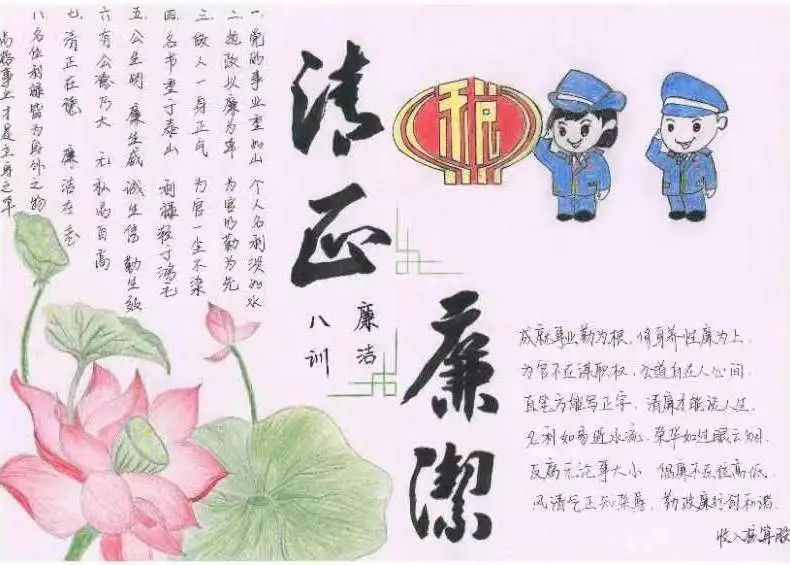 清正
廉潔
税
廉洁
八训
一.党的事业重如山 个人名利淡如水
二.执政以廉为本 为官以勤为先
三.做人一身正气 为官一尘不染
四.名节重于泰山 利禄轻于鸿毛
五.公生明 廉生威 诚生信 勤生效
六.有公德乃大 无私品自高
七.清正在德 廉洁在志
八.名位利禄皆为身外之物
事业才是立身之本
成就事业勤为根,修身养性廉为上.
为官不在谋职权,公道自在人心间.
直笔方能写正字,清廉才能说人生.
名利如易逝水流,荣华如过眼云烟.
反腐无论事大小 倡廉不在位高低.
风清气正知荣辱,勤政廉政创和谐.
收入核算股